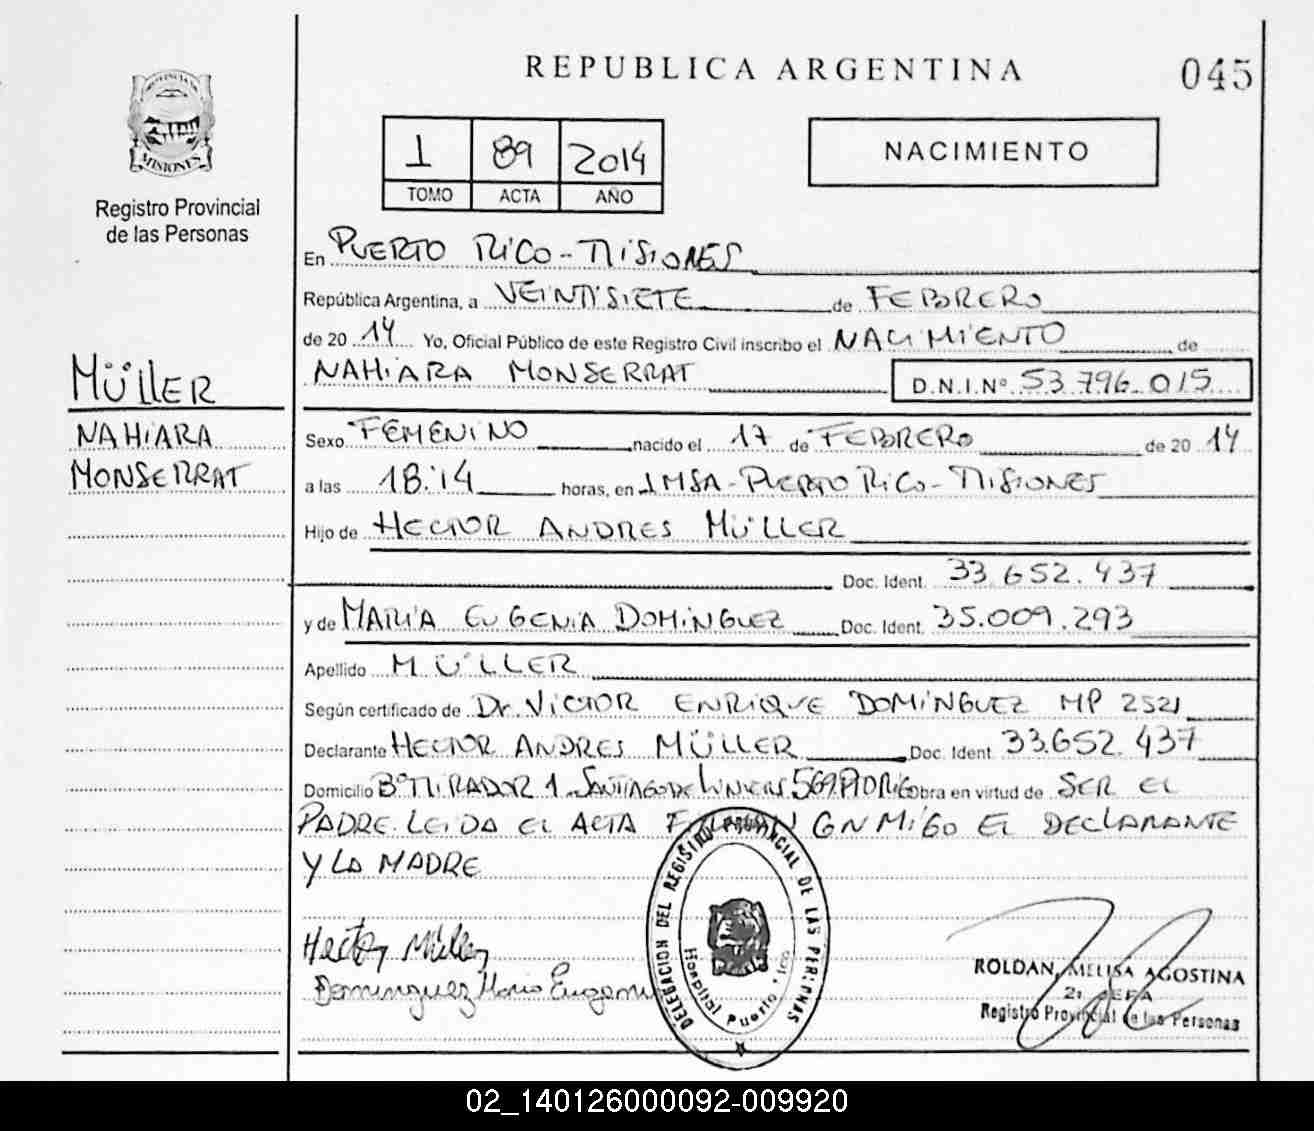 REPUBLICA ARGENTINA
045
PROVINCIA DE
MISIONES
Registro Provincial
de las Personas
1 89 2014
TOMO ACTA AÑO
NACIMIENTO
En PUERTO RICO - MISIONES
República Argentina, a VEINTISIETE de FEBRERO
de 20 14 Yo, Oficial Público de este Registro Civil inscribo el NACIMIENTO de
NAHIARA MONSERRAT D.N.I.Nº 53.796.015
MÜLLER
NAHIARA
MONSERRAT
Sexo FEMENINO nacido el 17 de FEBRERO de 20 14
a las 18:14 horas, en IMSA - PUERTO RICO - MISIONES
Hijo de HECTOR ANDRES MÜLLER
Doc. Ident. 33.652.437
y de MARIA EUGENIA DOMINGUEZ Doc. Ident. 35.009.293
Apellido MÜLLER
Según certificado de Dr. VICTOR ENRIQUE DOMINGUEZ MP 2521
Declarante HECTOR ANDRES MÜLLER Doc. Ident 33.652.437
Domicilio Bº MIRADOR 1 SANTIAGO DE LINIERS 569 PTO RICO Obra en virtud de SER EL
PADRE. LEIDA EL ACTA FIRMAN CONMIGO EL DECLARANTE
Y LA MADRE
Hector Müller
Dominguez Maria Eugenia
DELEGACION DEL REGISTRO PROVINCIAL DE LAS PERSONAS
Hospital Puerto Rico
ROLDAN, MELISA AGOSTINA
JEFA
Registro Provincial de las Personas
02_140126000092-009920